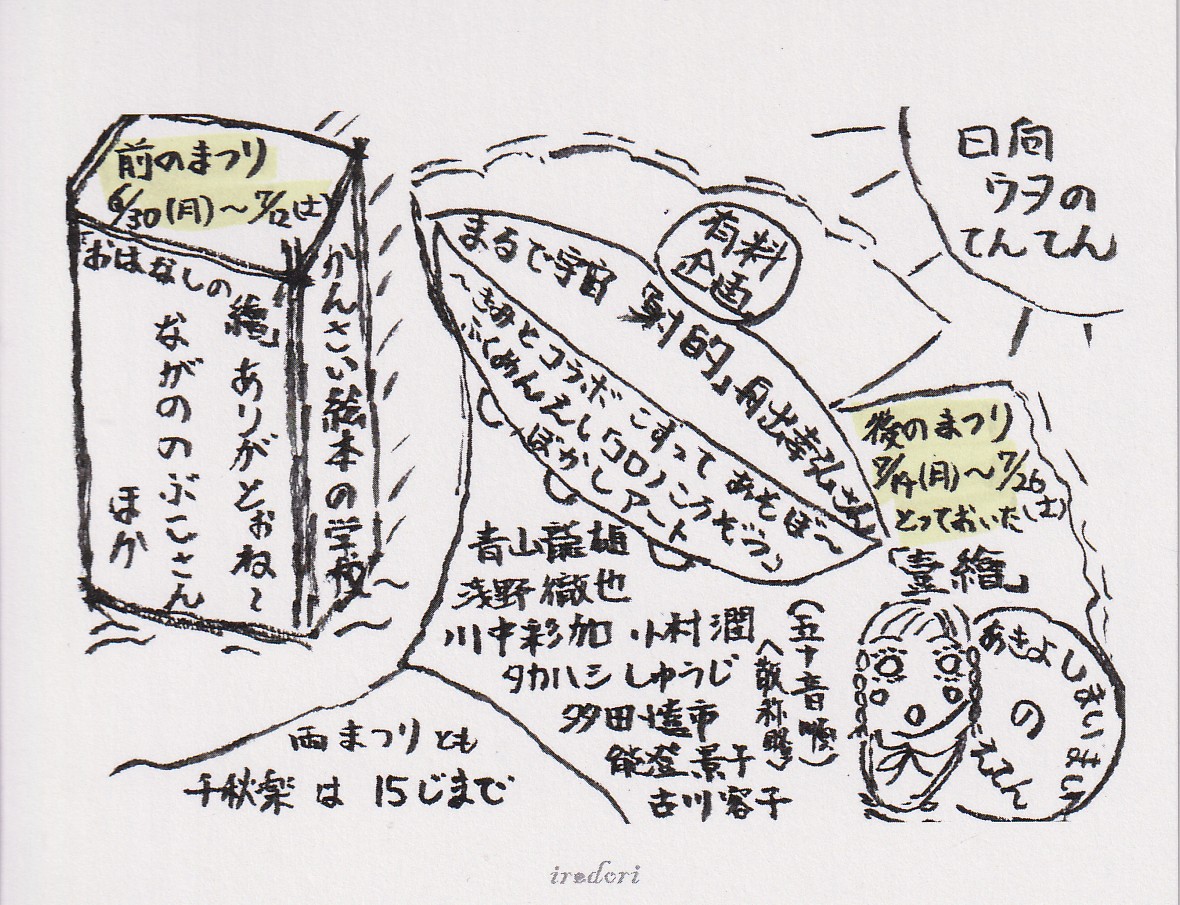 前のまつり
6/30(月)～7/12(土)
かんさい絵本の学校～
「おはなしの
繪」ありがとぉね～
ながののぶこさん
ほか
有料
企画
まるで宇宙「射的」舟出孝弘さん
～きみとコラボ こすって あそぼ～
ふくめんえし「コロノこうだ
ぼかしアート
日向
ウヲの
てんてん
後のまつり
7/14(月)～7/26(土)
とっておいた
「壹繪」
あきよしまいまいまい
の
えてん
青山龍雄
浅野徹也
川中彩加 小村潤
タカハシしゅうじ
多田憘市
能登景子
古川容子
(五十音順)
<敬称略>
両まつりとも
千秋楽は15じまで
iredori